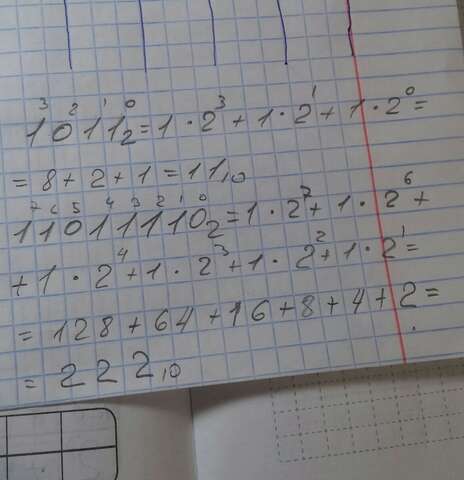 3 2 1 0
1011₂ = 1 · 2³ + 1 · 2¹ + 1 · 2⁰ =
= 8 + 2 + 1 = 11,₁₀
7 6 5 4 3 2 1 0
11011110₂ = 1 · 2⁷ + 1 · 2⁶ +
+ 1 · 2⁴ + 1 · 2³ + 1 · 2² + 1 · 2¹ =
= 128 + 64 + 16 + 8 + 4 + 2 =
= 222,₁₀